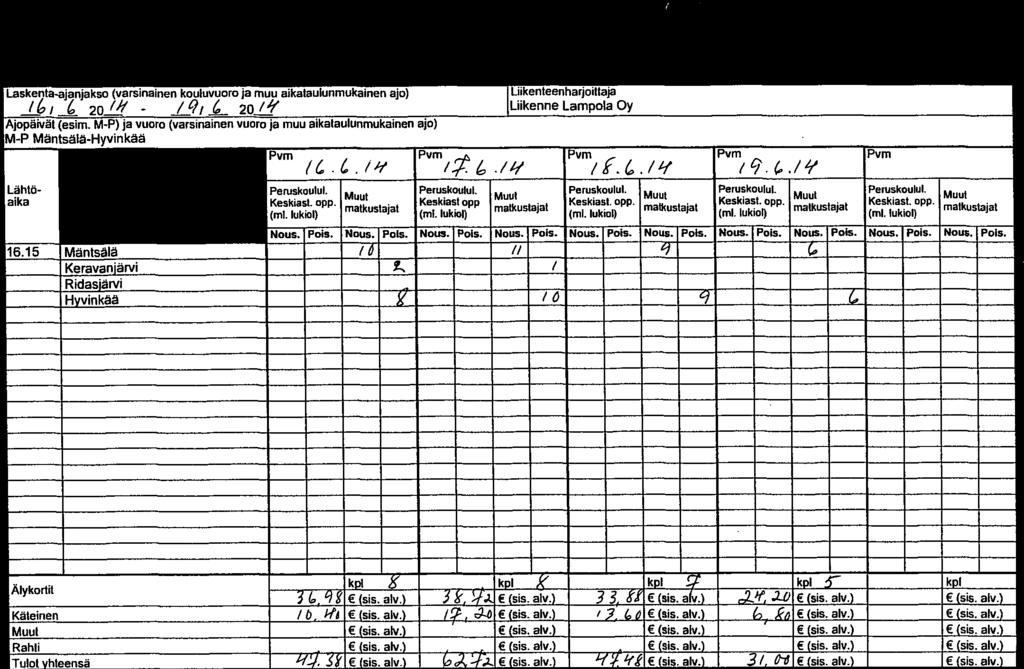 Laskenta-ajanjakso (varsinainen kouluvuoro ja muu aikataulunmukainen ajo)
16, 6 2014 - 19, 6 2014
Liikenteenharjoittaja
Liikenne Lampola Oy
Ajopäivät (esim. M-P) ja vuoro (varsinainen vuoro ja muu aikataulunmukainen ajo)
M-P Mäntsälä-Hyvinkää
Pvm 16.6.14 Pvm 17.6.14 Pvm 18.6.14 Pvm 19.6.14 Pvm
Lähtö-
aika
Peruskoulul. Peruskoulul. Peruskoulul. Peruskoulul. Peruskoulul.
Keskiast. opp. Muut Keskiast opp Muut Keskiast. opp. Muut Keskiast. opp. Muut Keskiast. opp. Muut
(ml. lukiol) matkustajat (ml. lukiol) matkustajat (ml. lukiol) matkustajat (ml. lukiol) matkustajat (ml. lukiol) matkustajat
Nous. Pois. Nous. Pois. Nous. Pois. Nous. Pois. Nous. Pois. Nous. Pois. Nous. Pois. Nous. Pois. Nous. Pois. Nous. Pois.
16.15 Mäntsälä 10 11 9 6
Keravanjärvi 2 1
Ridasjärvi
Hyvinkää 8 10 9 6
Älykortit kpl 8 kpl 8 kpl 7 kpl 5 kpl
36,98 € (sis. alv.) 38,72 € (sis. alv.) 33,88 € (sis. alv.) 24,20 € (sis. alv.) € (sis. alv.)
Käteinen 10,40 € (sis. alv.) 17,20 € (sis. alv.) 13,60 € (sis. alv.) 6,80 € (sis. alv.) € (sis. alv.)
Muut € (sis. alv.) € (sis. alv.) € (sis. alv.) € (sis. alv.) € (sis. alv.)
Rahti € (sis. alv.) € (sis. alv.) € (sis. alv.) € (sis. alv.) € (sis. alv.)
Tulot yhteensä 47.38 € (sis. alv.) 62,72 € (sis. alv.) 47,48 € (sis. alv.) 31,00 € (sis. alv.) € (sis. alv.)